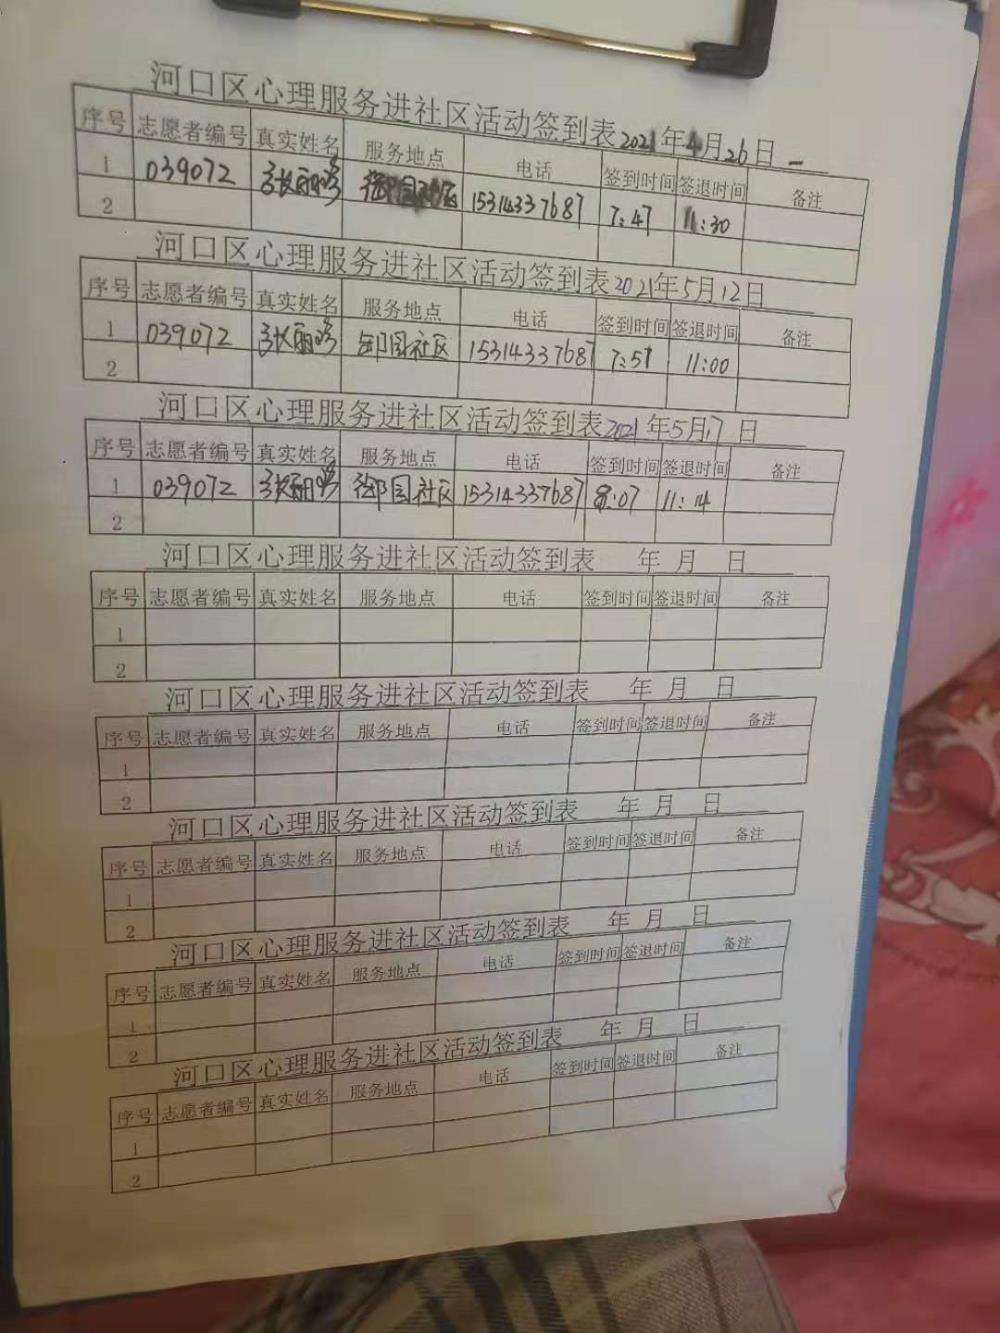 河口区心理服务进社区活动签到表2021年4月26日
序号 志愿者编号 真实姓名 服务地点 电话 签到时间 签退时间 备注
1 039072 张丽 15314337687 7:47 11:30
2
河口区心理服务进社区活动签到表2021年5月12日
序号 志愿者编号 真实姓名 服务地点 电话 签到时间 签退时间 备注
1 039072 张丽 社区 15314337687 7:51 11:00
2
河口区心理服务进社区活动签到表2021年5月17日
序号 志愿者编号 真实姓名 服务地点 电话 签到时间 签退时间 备注
1 039072 张丽 社区 15314337687 8:07 11:14
2
河口区心理服务进社区活动签到表 年 月 日
序号 志愿者编号 真实姓名 服务地点 电话 签到时间 签退时间 备注
1
2
河口区心理服务进社区活动签到表 年 月 日
序号 志愿者编号 真实姓名 服务地点 电话 签到时间 签退时间 备注
1
2
河口区心理服务进社区活动签到表 年 月 日
序号 志愿者编号 真实姓名 服务地点 电话 签到时间 签退时间 备注
1
2
河口区心理服务进社区活动签到表 年 月 日
序号 志愿者编号 真实姓名 服务地点 电话 签到时间 签退时间 备注
1
2
河口区心理服务进社区活动签到表 年 月 日
序号 志愿者编号 真实姓名 服务地点 电话 签到时间 签退时间 备注
1
2